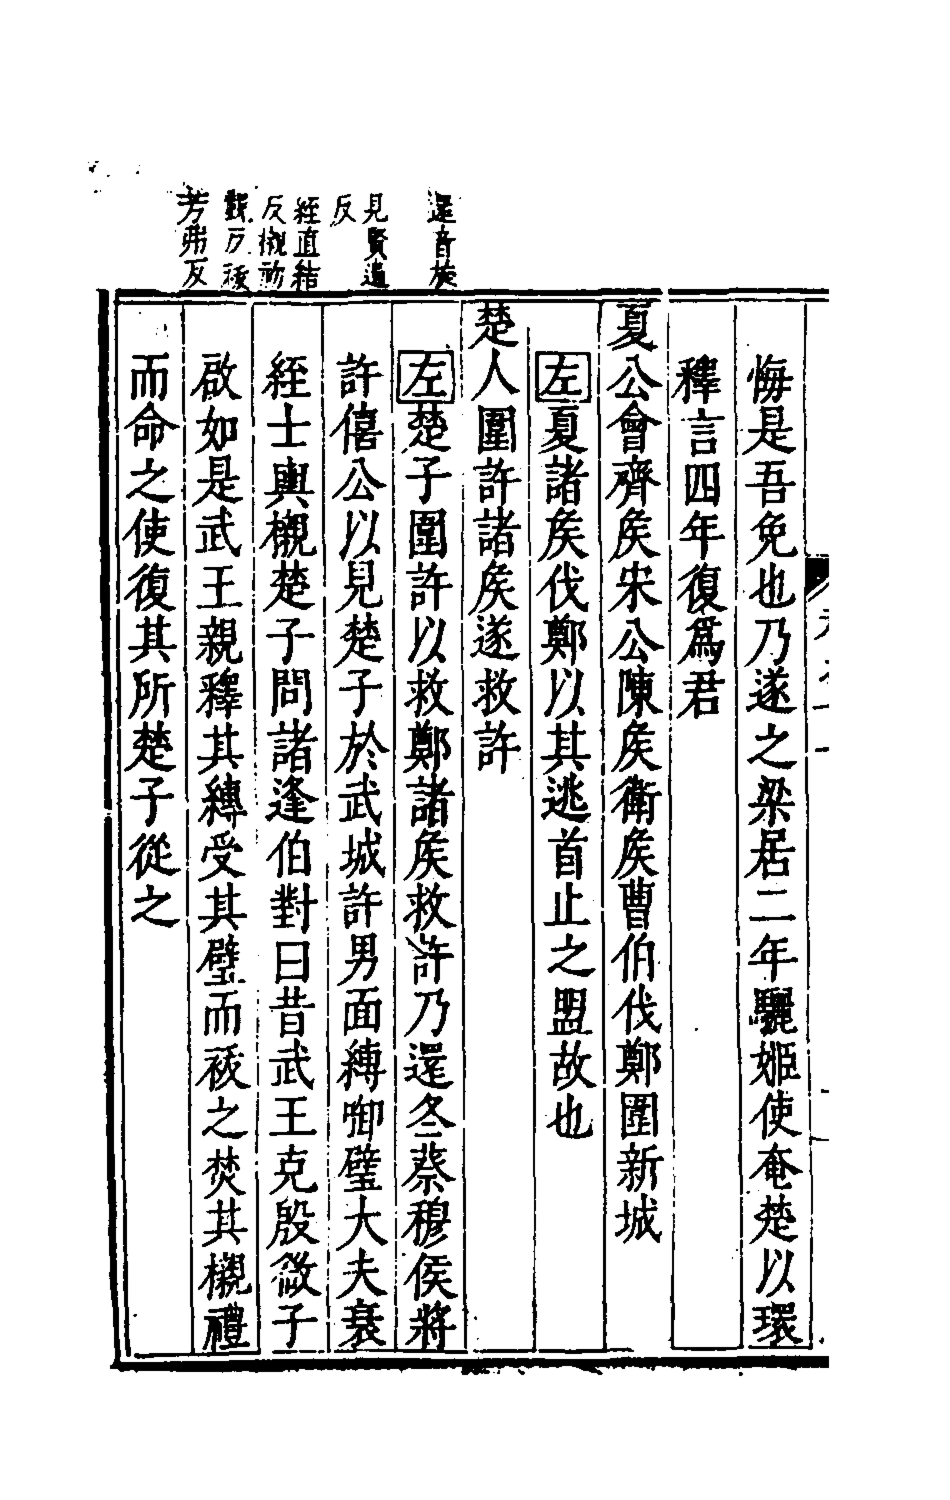 還音旋
見賢遍
反
絰直結
反櫬初
覲反祓
芳弗反
悔是吾免也乃遂之梁居二年驪姬使奄楚以環
釋言四年復爲君
夏公會齊矦宋公陳矦衛矦曹伯伐鄭圍新城
左夏諸矦伐鄭以其逃首止之盟故也
楚人圍許諸矦遂救許
左楚子圍許以救鄭諸矦救許乃還冬蔡穆侯將
許僖公以見楚子於武城許男面縛啣璧大夫衰
絰士輿櫬楚子問諸逢伯對曰昔武王克殷微子
啟如是武王親釋其縛受其璧而祓之焚其櫬禮
而命之使復其所楚子從之